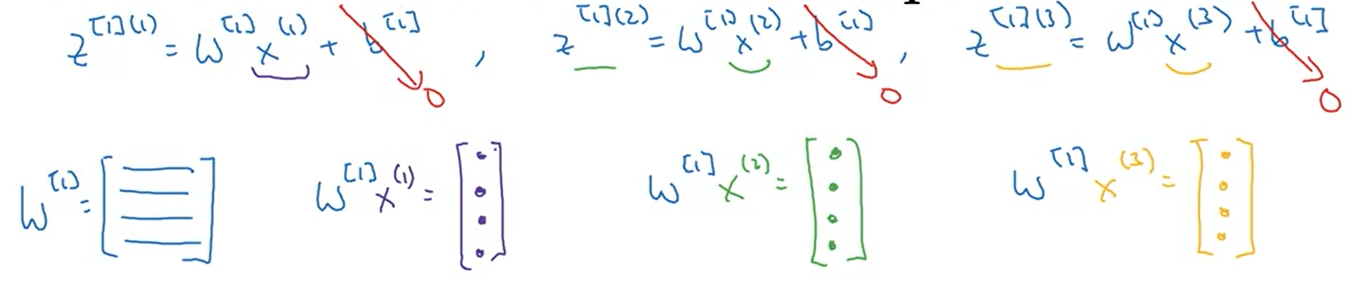 z^{[1](1)} = W^{[1]} x^{(1)} + b^{[1]} , z^{[1](2)} = W^{[1]} x^{(2)} + b^{[1]} , z^{[1](3)} = W^{[1]} x^{(3)} + b^{[1]}
0 0 0
W^{[1]} = [ ] W^{[1]} x^{(1)} = [ ] W^{[1]} x^{(2)} = [ ] W^{[1]} x^{(3)} = [ ]